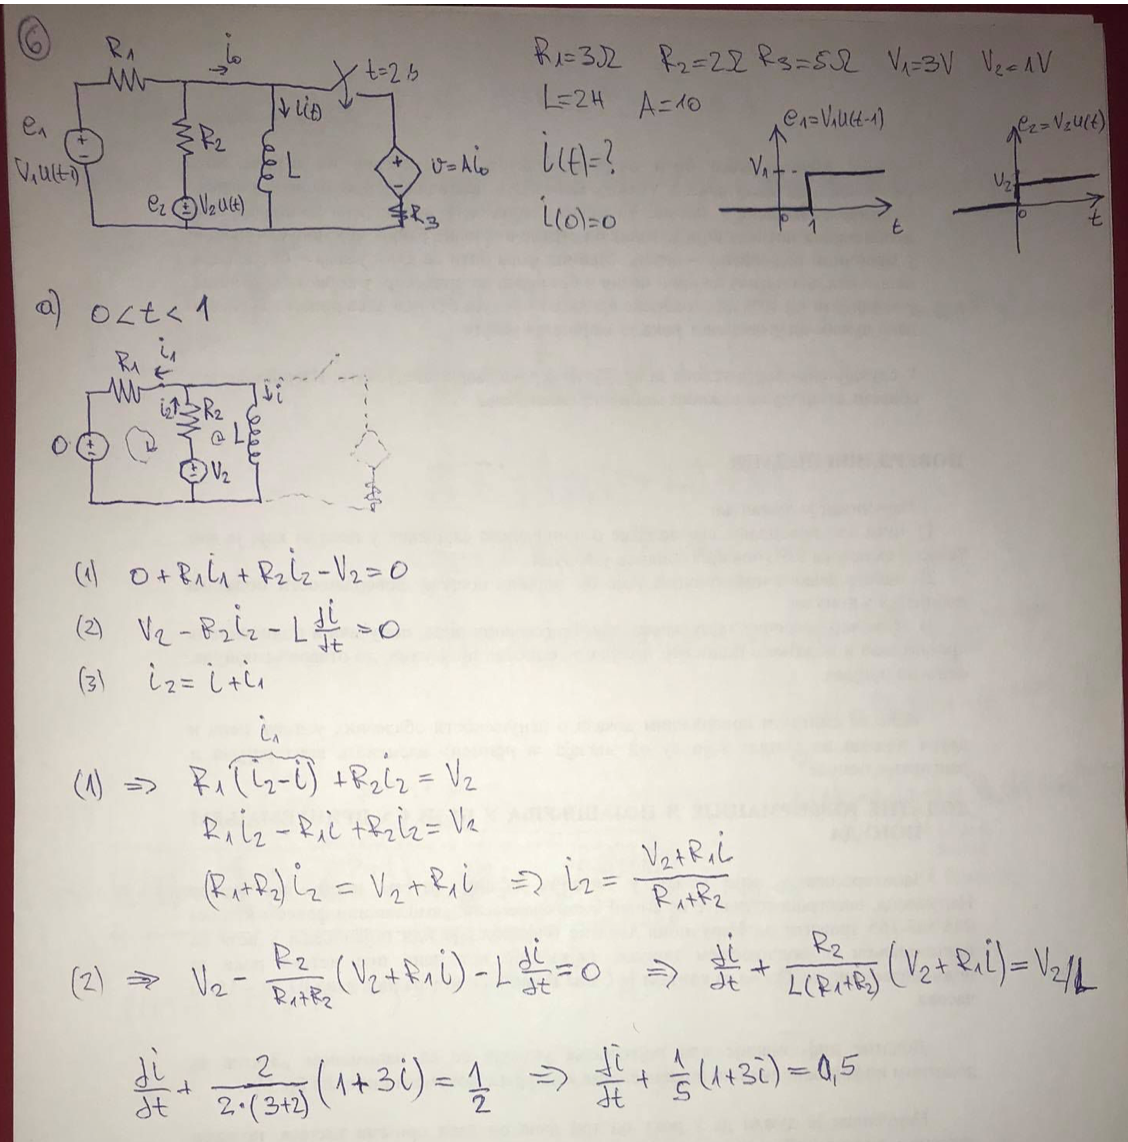 6
R1 i0 t=2s
R1=3Ω R2=2Ω R3=5Ω V1=3V V2=1V
L=2H A=10
e1 V1u(t-1)
R2 e2 V2u(t)
i(t) L
v=Ai0 R3
i(t)=?
i(0)=0
e1=V1u(t-1)
V1 0 1 t
e2=V2u(t)
V2 0 t
a) 0<t<1
R1 i1 i2 R2 i
0 L V2
(1) 0+R1i1+R2i2-V2=0
(2) V2-R2i2-L di/dt=0
(3) i2=i+i1
i1
(1) ⇒ R1(i2-i)+R2i2=V2
R1i2-R1i+R2i2=V2
(R1+R2)i2=V2+R1i ⇒ i2=(V2+R1i)/(R1+R2)
(2) ⇒ V2-R2/(R1+R2)(V2+R1i)-L di/dt=0 ⇒ di/dt+R2/(L(R1+R2))(V2+R1i)=V2/L
di/dt+2/(2·(3+2))(1+3i)=1/2 ⇒ di/dt+1/5(1+3i)=0,5